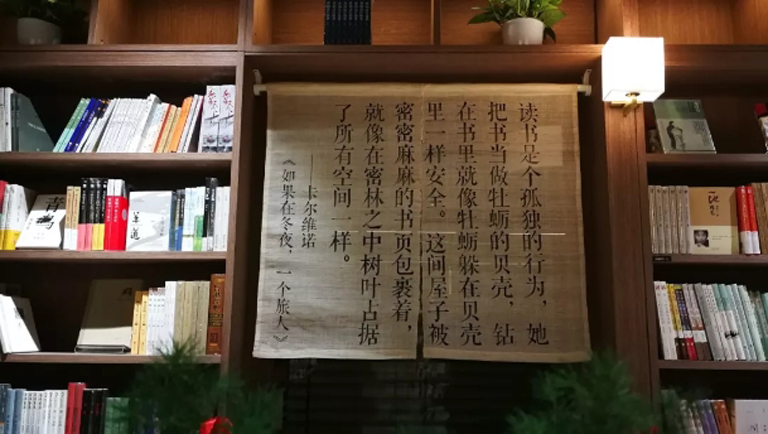 读书是个孤独的行为，她
把书当做牡蛎的贝壳，钻
在书里就像牡蛎躲在贝壳
里一样安全。这间屋子被
密密麻麻的书页包裹着，
就像在密林之中树叶占据
了所有空间一样。
——卡尔维诺
《如果在冬夜，一个旅人》